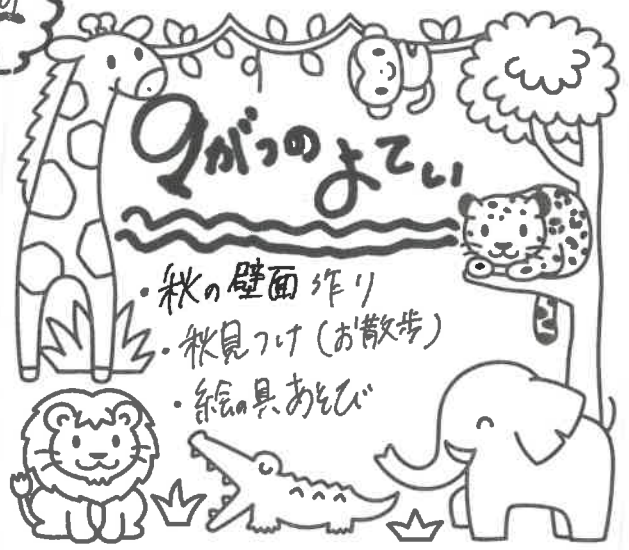 9がつのよてい
・秋の壁面作り
・秋見つけ(お散歩)
・絵の具あそび